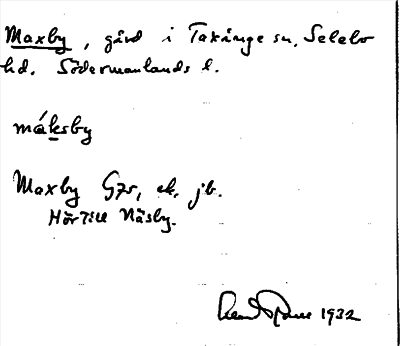 Maxby, gård i Taxinge sn, Selebo
hd. Södermanlands l.
máksby
Maxby G7s, ek. jb.
Hör till Näsby.
1932